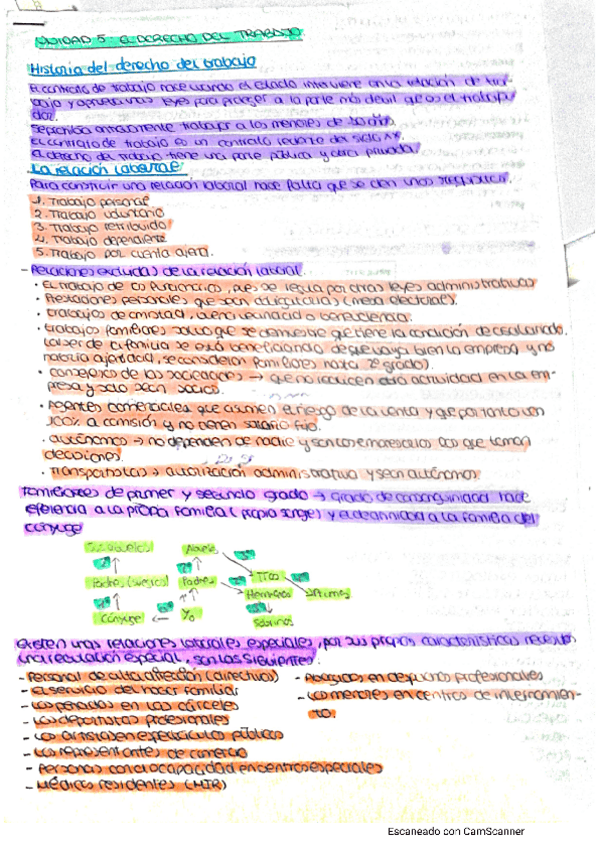 UNIDAD 5: EL DERECHO DEL TRABAJO
Historia del derecho del trabajo
El contrato de trabajo nace cuando el estado interviene en la relación de tra-
bajo y aprueba unas leyes para proteger a la parte más debil que es el trabaja-
dor.
Se prohibia trabajar a los menores de
El contrato de trabajo es un contrato reciente del siglo XX.
El derecho del trabajo tiene una parte pública y otra privada.
La relación laboral
Para construir una relación laboral hace falta que se den unos
1. Trabajo personal
2. Trabajo voluntario
3. Trabajo retribuido
4. Trabajo dependiente
5. Trabajo por cuenta ajena.
- Relaciones excluidas de la relación laboral.
· El trabajo de los funcionarios, pues se regula por otras leyes administrativas
· Prestaciones personales que sean obligatorias (mesa electoral).
· trabajos de amistad, buena vecindad o benevolencia.
· trabajos familiares salvo que se demuestre que tiene la condición de asalariado.
(al ser de tu familia se está beneficiando de que vaya bien la empresa y no
habría ajenidad, se consideran familiares hasta 2º grado).
· consejeros de las sociedades → que no realicen otra actividad en la em-
presa y solo sean socios.
· Agentes comerciales que asumen el riesgo de la venta y que por tanto van
100% a comisión y no tienen salario fijo.
· autónomos → no dependen de nadie y son los empresarios los que toman
decisiones.
· Transportistas → autorización administrativa y sean autónomos.
Familiares de primer y segundo grado → grado de consanguinidad hace
referencia a la propia familia (propia sangre) y el de afinidad a la familia del
cónyuge
Abuelos
Padres (suegros) Padres Tíos
Hermanos Primos
Cónyuge Yo Sobrinos
Existen unas relaciones laborales especiales, por sus propias características requieren
una regulación especial, son las siguientes.
- Personal de alta dirección (directivos)
- El servicio del hogar familiar
- Los penados en las cárceles
- Los deportistas profesionales
- Los artistas en espectáculos públicos
- Los representantes de comercio
- Personas con discapacidad en centros especiales
- Médicos residentes (MIR)
- Abogados en despachos profesionales
- Los menores en centros de internamien-
to.
Escaneado con CamScanner